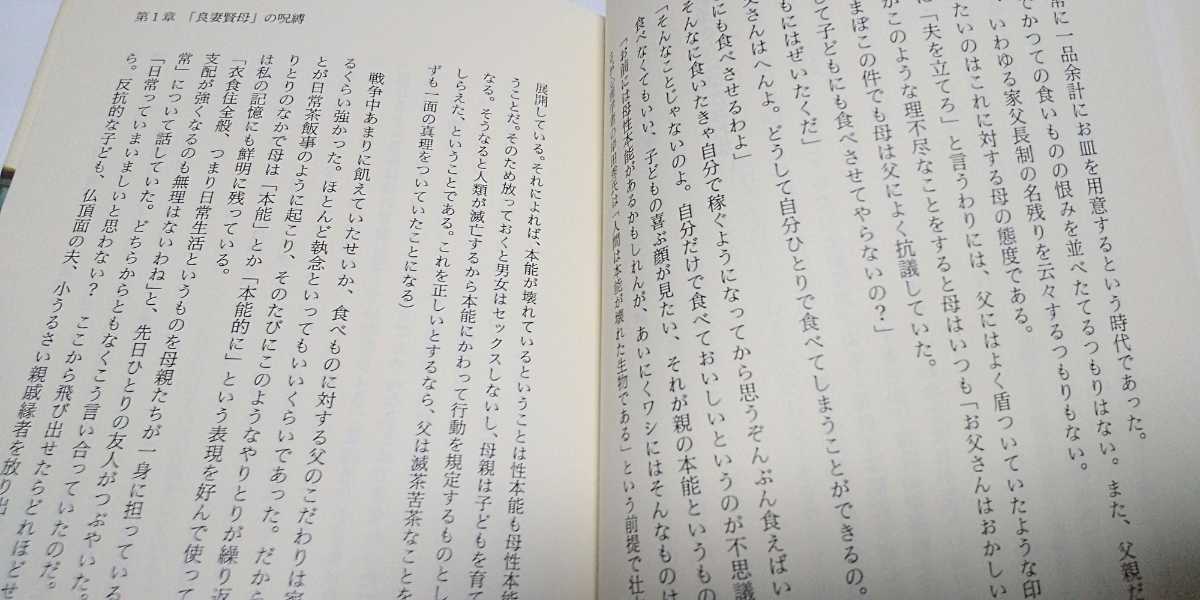 常に一品余計にお皿を用意するという時代であった。
でかつての食いものの恨みを並べたてるつもりはない。また、父親だ
、いわゆる家父長制の名残りを云々するつもりもない。
たいのはこれに対する母の態度である。
に「夫を立てろ」と言うわりには、父にはよく盾ついていたような印
がこのような理不尽なことをすると母はいつも「お父さんはおかしい
まぼこの件でも母は父によく抗議していた。
父さんはへんよ。どうして自分ひとりで食べてしまうことができるの。
して子どもにも食べさせてやらないの？」
もにはぜいたくだ」
にも食べさせるわよ」
そんなに食いたきゃ自分で稼ぐようになってから思うぞんぶん食えばい
「そんなことじゃないのよ。自分だけで食べておいしいというのが不思議
食べなくてもいい、子どもの喜ぶ顔が見たい、それが親の本能というもの
「お前には母性本能があるかもしれんが、あいにくワシにはそんなものは
「人間は本能が壊れた生物である」という前提で壮
第1章　「良妻賢母」の呪縛
展開している。それによれば、本能が壊れているということは性本能も母性本能
うことだ。そのため放っておくと男女はセックスしないし、母親は子どもを育て
なる。そうなると人類が滅亡するから本能にかわって行動を規定するものとし
しらえた、ということである。これを正しいとするなら、父は滅茶苦茶なことを
ずも一面の真理をついていたことになる）
戦争中あまりに飢えていたせいか、食べものに対する父のこだわりは容
るくらい強かった。ほとんど執念といってもいいくらいであった。だから
とが日常茶飯事のように起こり、そのたびにこのようなやりとりが繰り返
りとりのなかで母は「本能」とか「本能的に」という表現を好んで使って
は私の記憶にも鮮明に残っている。
「衣食住全般、つまり日常生活というものを母親たちが一身に担っている
支配が強くなるのも無理はないわね」と、先日ひとりの友人がつぶやいた。
常」について話していた。どちらからともなくこう言い合っていたのだ。
「日常っていまいましいと思わない？　ここから飛び出せたらどれほどせ
ら。反抗的な子ども、仏頂面の夫、小うるさい親戚縁者を放り出